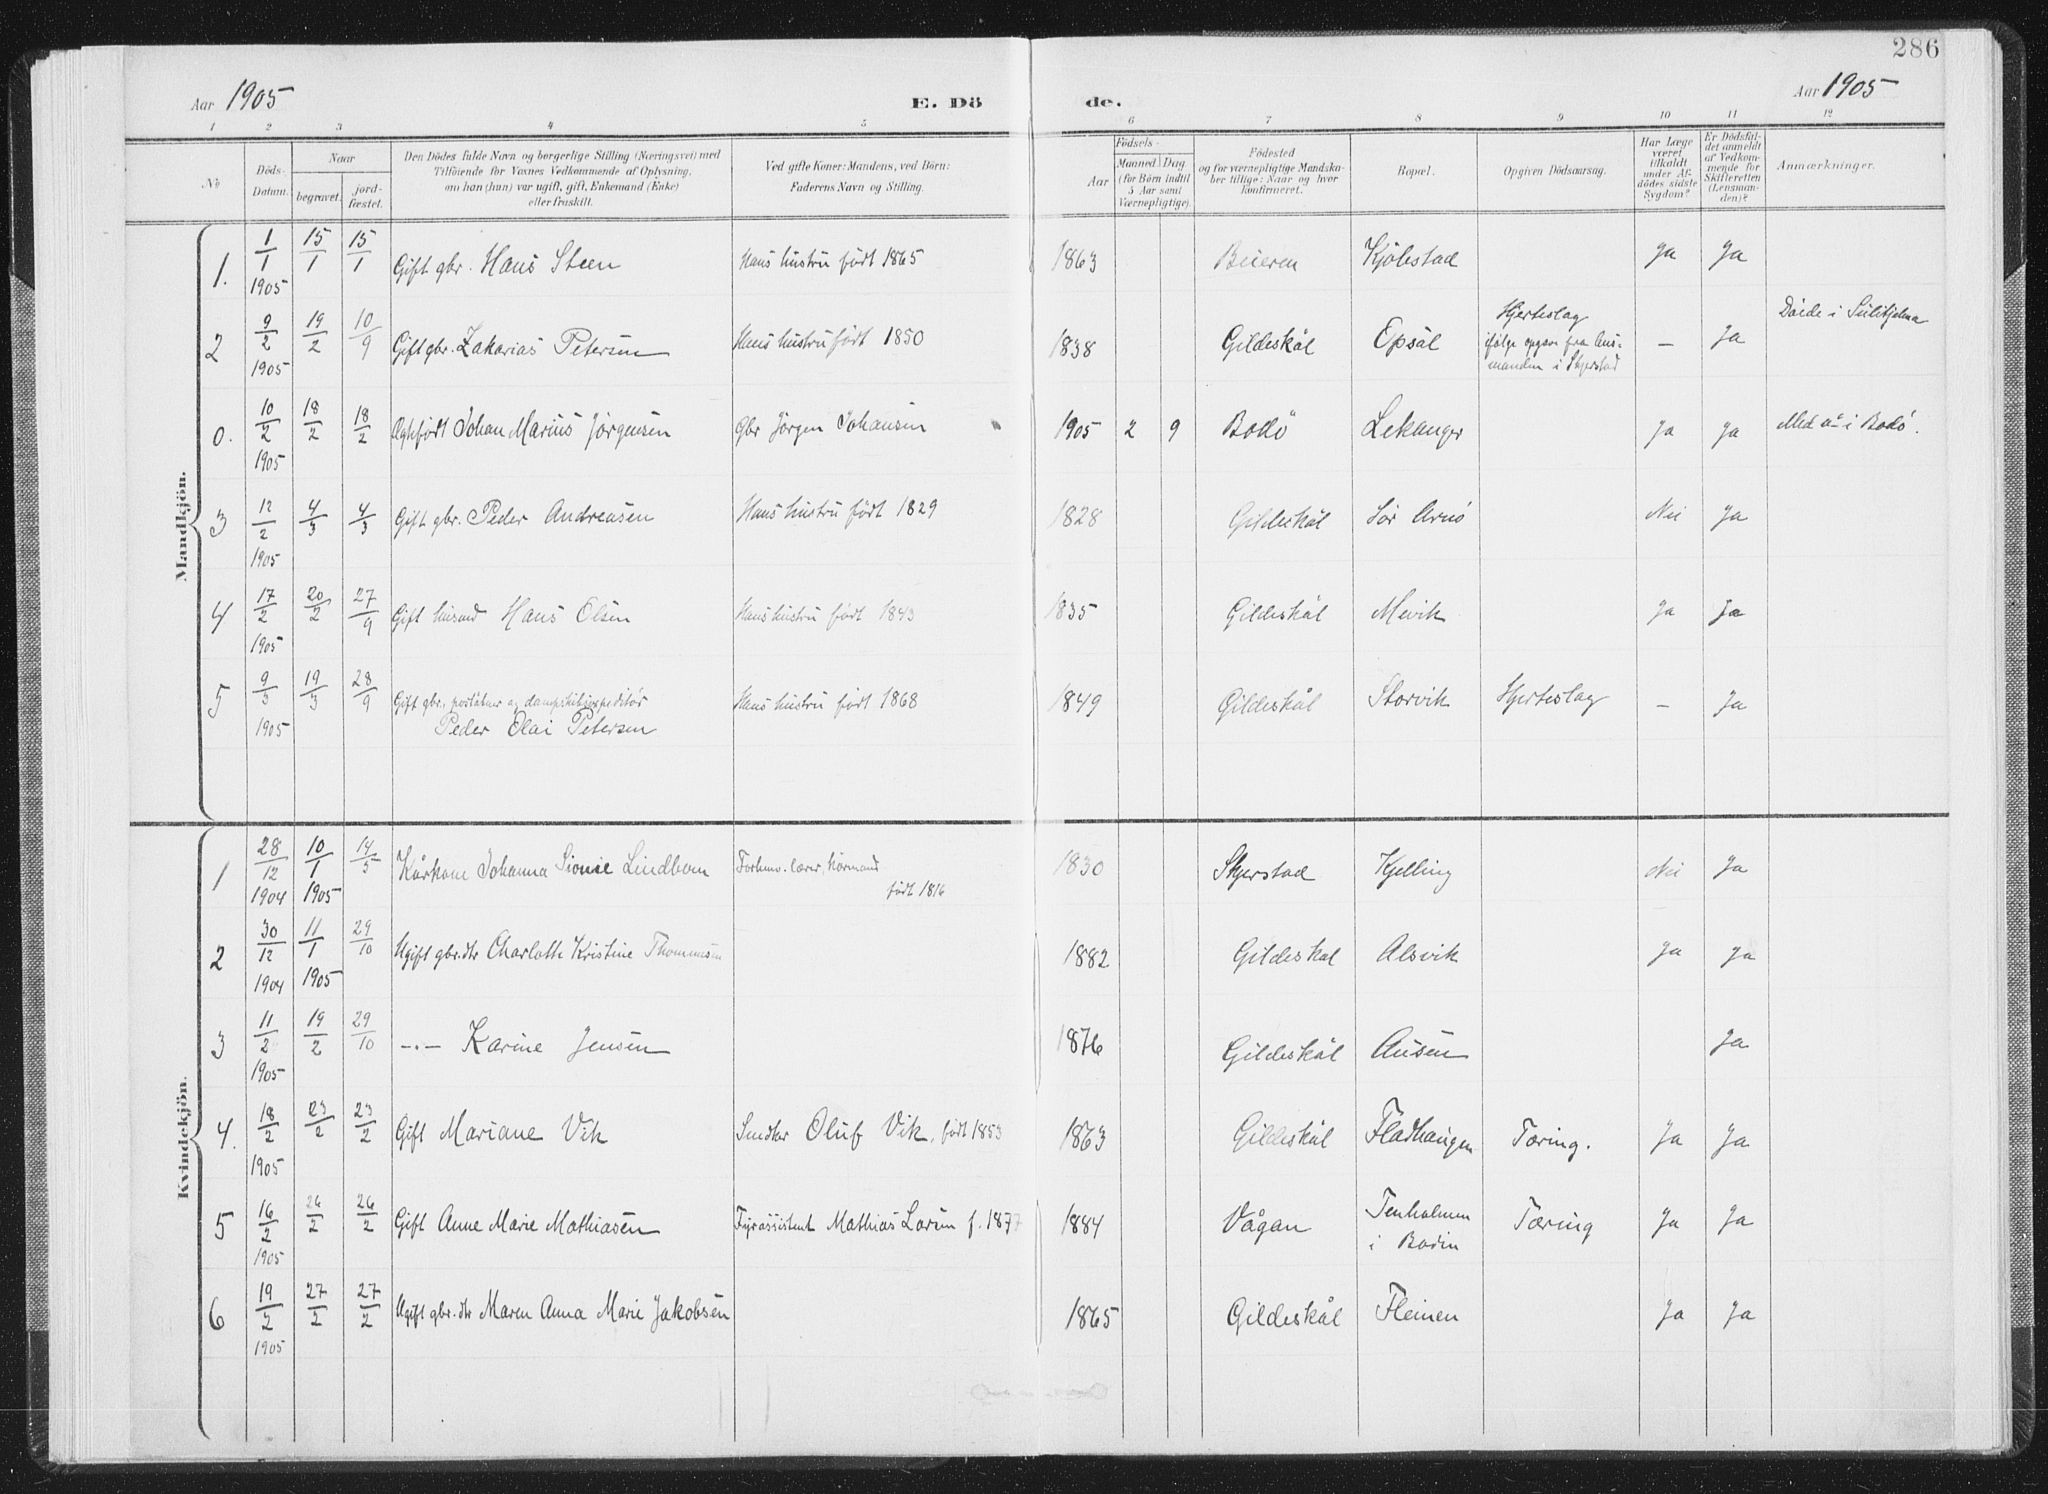 286
Aar 1905 E. Dö de. Aar 1905
1 2 3 4 5 6 7 8 9 10 11 12
No
Döds-Datum.
Naar
begravet.
jord-fæstet.
Den Dödes fulde Navn og borgerlige Stilling (Næringsvei) med
Tilföiende for Voxnes Vedkommende af Oplysning,
om han (hun) var ugift, gift, Enkemand (Enke)
eller fraskilt.
Ved gifte Koner: Mandens, ved Börn:
Faderens Navn og Stilling.
Födsels-
Aar
Maaned Dag
(for Börn indtil
5 Aar samt
Værnepligtige).
Födested
og for værnepligtige Mandska-
ber tillige: Naar og hvor
konfirmeret.
Bopæl.
Opgiven Dödsaarsag.
Har Læge
været
tilkaldt
under Af-
dödes sidste
Sygdom?
Er Dödsfal-
det anmeldt
af Vedkom-
mende for
Skifteretten
(Lensman-
den)?
Anmærkninger.
Mandkjön.
1. 1/1 1905 15/1 15/1 Gift gbr. Hans Steen Hans hustru født 1865 1863 Beieren Kjölstad Ja Ja
2 9/2 1905 19/2 10/9 Gift gbr. Zakarias Petersen Hans hustru født 1850 1838 Gildeskål Opsal Hjerteslag
ifølge opgave fra
manden i Skjerstad — Ja Døide i Sulitjelma
0. 10/2 1905 18/2 18/2 Ægtefødt Johan Marius Jørgensen Gbr Jørgen Johansen 1905 2 9 Bodø Lekanger Ja Ja Med i Bodø.
3 12/2 1905 4/3 4/3 Gift gbr. Peder Andreasen Hans hustru født 1829 1828 Gildeskål Sør Arnø Nei Ja
4 17/2 1905 20/2 27/9 Gift husmd Hans Olsen Hans hustru født 1843 1835 Gildeskål Mevik Ja Ja
5 9/3 1905 19/3 28/9 Gift gbr., poståbner og dampskibsexpeditør
Peder Olai Petersen Hans hustru født 1868 1849 Gildeskål Storvik Hjerteslag — Ja
Kvindekjön.
1 28/12 1904 10/1 1905 14/5 Kårkone Johanna Lindbom Forhenv. lærer,
født 1816 1830 Skjerstad Kjelling Nei Ja
2 30/12 1904 11/1 1905 29/10 Ugift gbr.dtr Charlotte Kristine Thommesen 1882 Gildeskal Alsvik Ja Ja
3 11/2 1905 19/2 29/10 —.— Karine Jensen 1876 Gildeskål Ausen Ja
4. 18/2 1905 23/2 23/2 Gift Mariane Vik Oluf Vik, født 1853 1863 Gildeskål Fladhaugen Tæring. Ja Ja
5 16/2 1905 26/2 26/2 Gift Anne Marie Mathiasen Fyrassistent Mathias Larsen f. 1877 1884 Vågan Tenholmen
i Bodin Tæring Ja Ja
6 19/2 1905 27/2 27/2 Ugift gbr.dtr Maren Anna Marie Jakobsen 1865 Gildeskål Fleinen Ja Ja